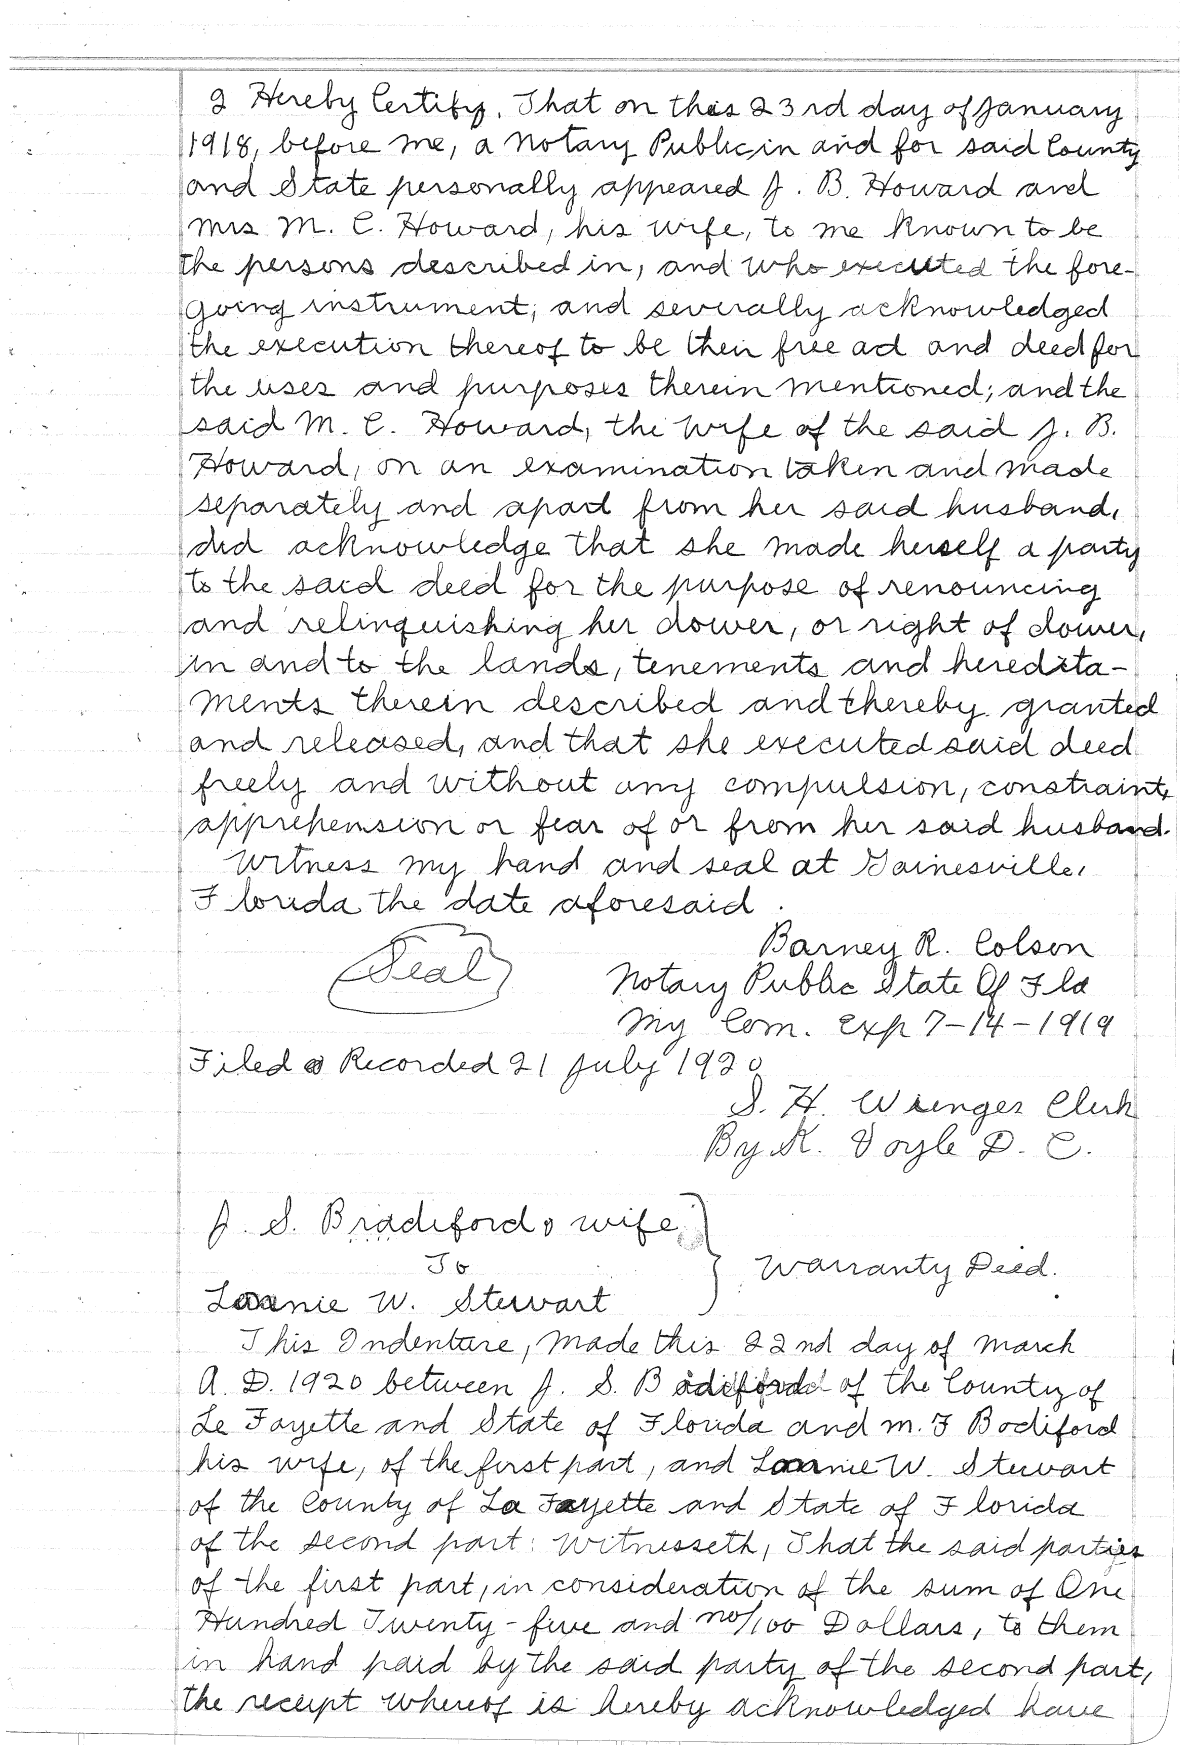 I Hereby Certify, That on this 23rd day of January
1918, before me, a Notary Public in and for said County
and State personally appeared J. B. Howard and
Mrs M. C. Howard, his wife, to me known to be
the persons described in, and who executed the fore-
going instrument, and severally acknowledged
the execution thereof to be their free act and deed for
the uses and purposes therein mentioned; and the
said M. C. Howard, the wife of the said J. B.
Howard, on an examination taken and made
separately and apart from her said husband,
did acknowledge that she made herself a party
to the said deed for the purpose of renouncing
and relinquishing her dower, or right of dower,
in and to the lands, tenements and heredita-
ments therein described and thereby granted
and released, and that she executed said deed
freely and without any compulsion, constraint,
apprehension or fear of or from her said husband.
Witness my hand and seal at Gainesville,
Florida the date aforesaid.
Barney R. Colson
Seal
Notary Public State Of Fla
My Com. Exp 7-14-1919
Filed & Recorded 21 July 1920
S. H. Wienges Clerk
By K. Doyle D. C.
J. S. Bradiford & wife
To
Warranty Deed.
Lonnie W. Stewart
This Indenture, Made this 22nd day of March
A. D. 1920 between J. S. Bodiford of the County of
La Fayette and State of Florida and M. F Bodiford
his wife, of the first part, and Lonnie W. Stewart
of the County of La Fayette and State of Florida
of the second part: Witnesseth, That the said parties
of the first part, in consideration of the sum of One
Hundred Twenty-five and no/100 Dollars, to them
in hand paid by the said party of the second part,
the receipt whereof is hereby acknowledged have